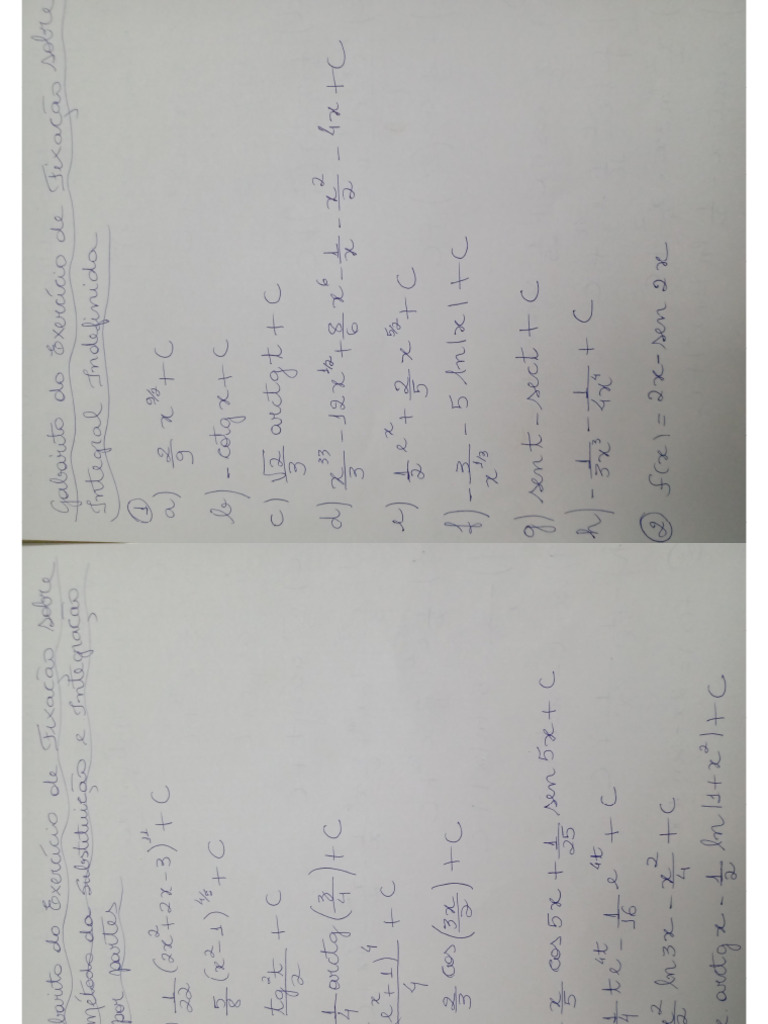 Gabarito do Exercício de Fixação sobre
Integral Indefinida
①
a) 2/9 x^{9/2} + C
b) - cotg x + C
c) √2/3 arctg t + C
d) x^{33}/3 - 12x^{1/2} + 8/6 x^6 - 1/x - x^2/2 - 4x + C
e) 1/2 e^x + 2/5 x^{5/2} + C
f) - 3/x^{1/3} - 5 ln|x| + C
g) sen t - sec t + C
h) - 1/3x^3 - 1/4x^4 + C
② f(x) = 2x - sen 2x
barito do Exercício de Fixação sobre
Método da Substituição e Integração
por partes
1/22 (2x^2 + 2x - 3)^{11} + C
5/8 (x^2 - 1)^{4/5} + C
tg^2 t/2 + C
1/4 arctg (3/4) + C
e^x + 1)^4/4 + C
2/3 cos (3x/2) + C
x/5 cos 5x + 1/25 sen 5x + C
1/4 t e^{4t} - 1/16 e^{4t} + C
2/2 ln 3x - x^2/4 + C
arctg x - 1/2 ln|1 + x^2| + C